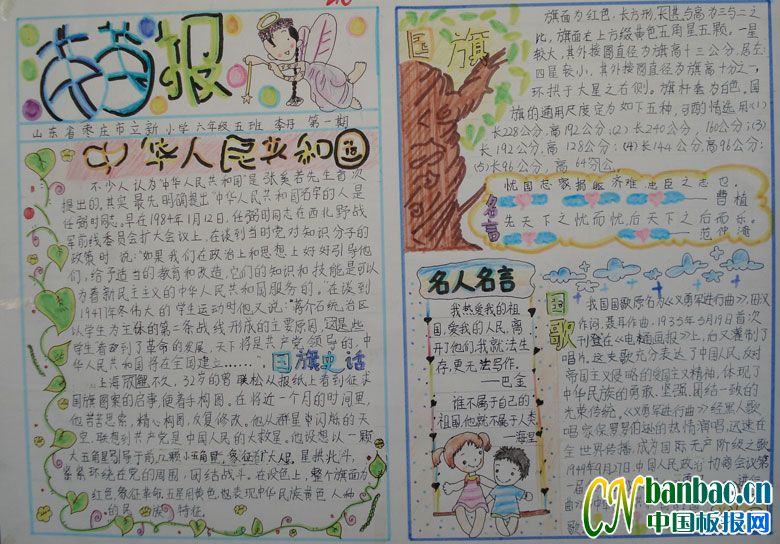 报
山东省枣庄市立新小学六年级五班 李丹 第一期
中华人民共和国
不少人认为"中华人民共和国"是张奚若先生首次
提出的,其实最先明确提出"中华人民共和国"名字的人是
任弼时同志。早在1984年1月12日,任弼时同志在西北野战
军前线委员会扩大会议上,在谈到当时党对知识分子的
政策时说:"如果我们在政治上和思想上好好引导他
们,给予适当的教育和改造,它们的知识和技能是可以
为着新民主主义的中华人民共和国服务的。在谈到
1947年冬伟大的学生运动时他又说:"蒋介石统治区
以学生为主体的第二条战线形成的主要原因,这是些
学生看到了革命的发展,天下将是共产党领导的,中
华人民共和国将在全国建立……
国旗史话
上海解放不久,32岁的曾联松从报纸上看到征求
国旗图案的启事,便着手构图。在将近一个月的时间里,
他苦苦思索,精心构图,反复修改。他从群星中闪烁的天
空,联想到共产党是中国人民的大救星。他设想以一颗
大五角星引导于前,几颗小五角星,象征广大人民,星拱北斗,
紧紧环绕在党的周围,团结战斗。在设色上,整个旗面为
红色,象征革命,五星用黄色,也表现中华民族黄色人种
的民族特征。
国旗
旗面为红色,长方形,长其与高为三与二之
比,旗面左上方缀黄色五角星五颗。一星
较大,其外接圆直径为旗高十三公分,居左;
四星较小,其外接圆直径为旗高十分之一,
环拱于大星之右侧。旗杆套为白色,国
旗的通用尺度定为如下五种,可酌情选用:(1)
长228公分,高192公分;(2)长240公分,160公分;(3)
长192公分,高128公分;(4)长144公分,高96公分;
(5)长96公分,高64公分。
名言
忧国忘家,捐躯济难,忠臣之志也。
——曹植
先天下之忧而忧,后天下之后而乐。
——范仲淹
名人名言
我热爱我的祖
国,爱我的人民,离
开了他们,我就无法生
存,更无法写作。
——巴金
谁不属于自己的
祖国,他就不属于人类
国歌
我国国歌原名为《义勇军进行曲》,田汉
作词,聂耳作曲,1935年5月19日首次
刊登在《电通画报》上,后又灌制了
唱片。这支歌充分表达了中国人民反对
帝国主义侵略的爱国主义精神,体现了
中华民族的勇敢、坚强、团结一致的
光荣传统。《义勇军进行曲》经黑人歌
唱家保罗罗伯逊的热情演唱,迅速在
全世界传播,成为国际无产阶级之歌
1949年9月27日,中国人民政治协商会议第
CNbanbao.cn
中国板报网